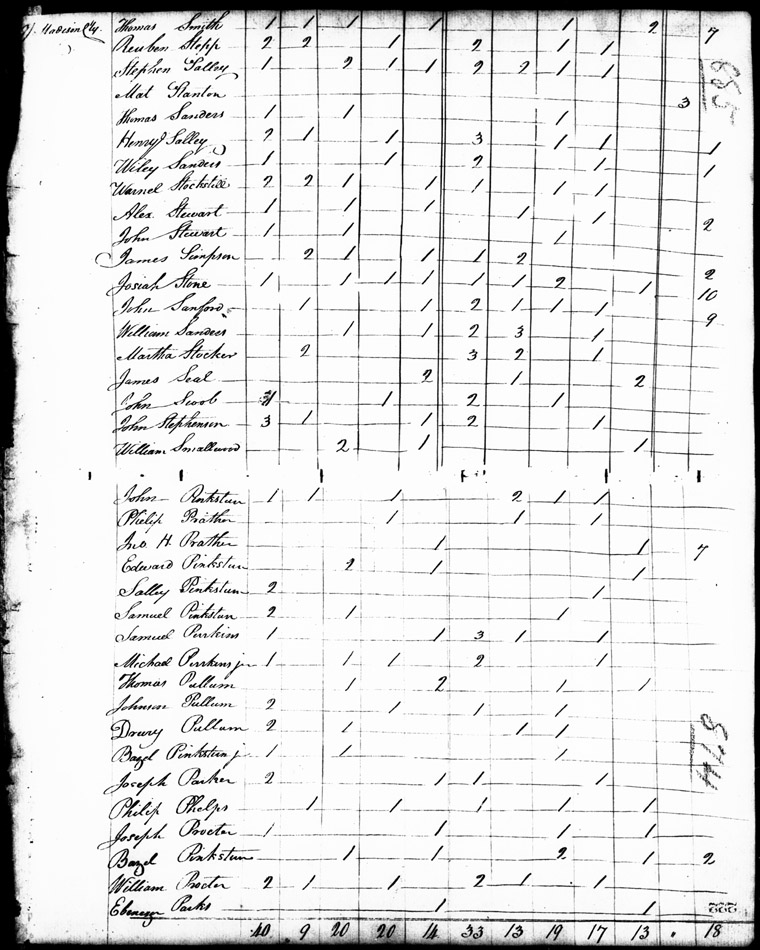 Madison Cty.
Thomas Smith 1 1 1 1 1 2 7
Reuben Stepp 2 2 1 2 1 1
Stephen Salley 1 2 1 1 2 2 1 1
Mat Stanton 3
Thomas Sanders 1 1 1
Henry Salley 2 1 1 3 1 1 1
Wiley Sanders 1 1 2 1 1
Warnel Stockstill 2 2 1 1 1 1 1
Alex Stewart 1 1 1 1 1
John Stewart 1 1 1 2
James Simpson 2 1 1 1 2
Josiah Stone 1 1 1 1 1 1 2 1 2
John Sanford 1 1 2 1 1 1 10
William Sanders 1 1 2 3 1 9
Martha Stocker 2 3 2 1
James Seal 2 1 2
John 1 2 1
John Stephenson 3 1 1 2 1
William Smallwood 2 1 1
John Pinkston 1 1 1 2 1 1
Philip Prather 1 1 1
Jno. H. Prather 1 1 7
Edward Pinkston 2 1 1
Salley Pinkston 2 1
Samuel Pinkston 2 1 1
Samuel Purkins 1 1 3 1 1
Michael Purrkins jr 1 1 1 2 1
Thomas Pullum 1 2 1 1
Johnson Pullum 2 1 1 1
Drury Pullum 2 1 1 1
Bazel Pinkston jr 1 1 1
Joseph Parker 2 1 1 1
Philip Phelps 1 1 1 1 1
Joseph Procter 1 1 1 1
Bazel Pinkston 1 1 2 1 2
William Procter 2 1 1 2 1 1
Ebenezer Parks 1 1
40 9 20 20 14 33 13 19 17 13 0 18